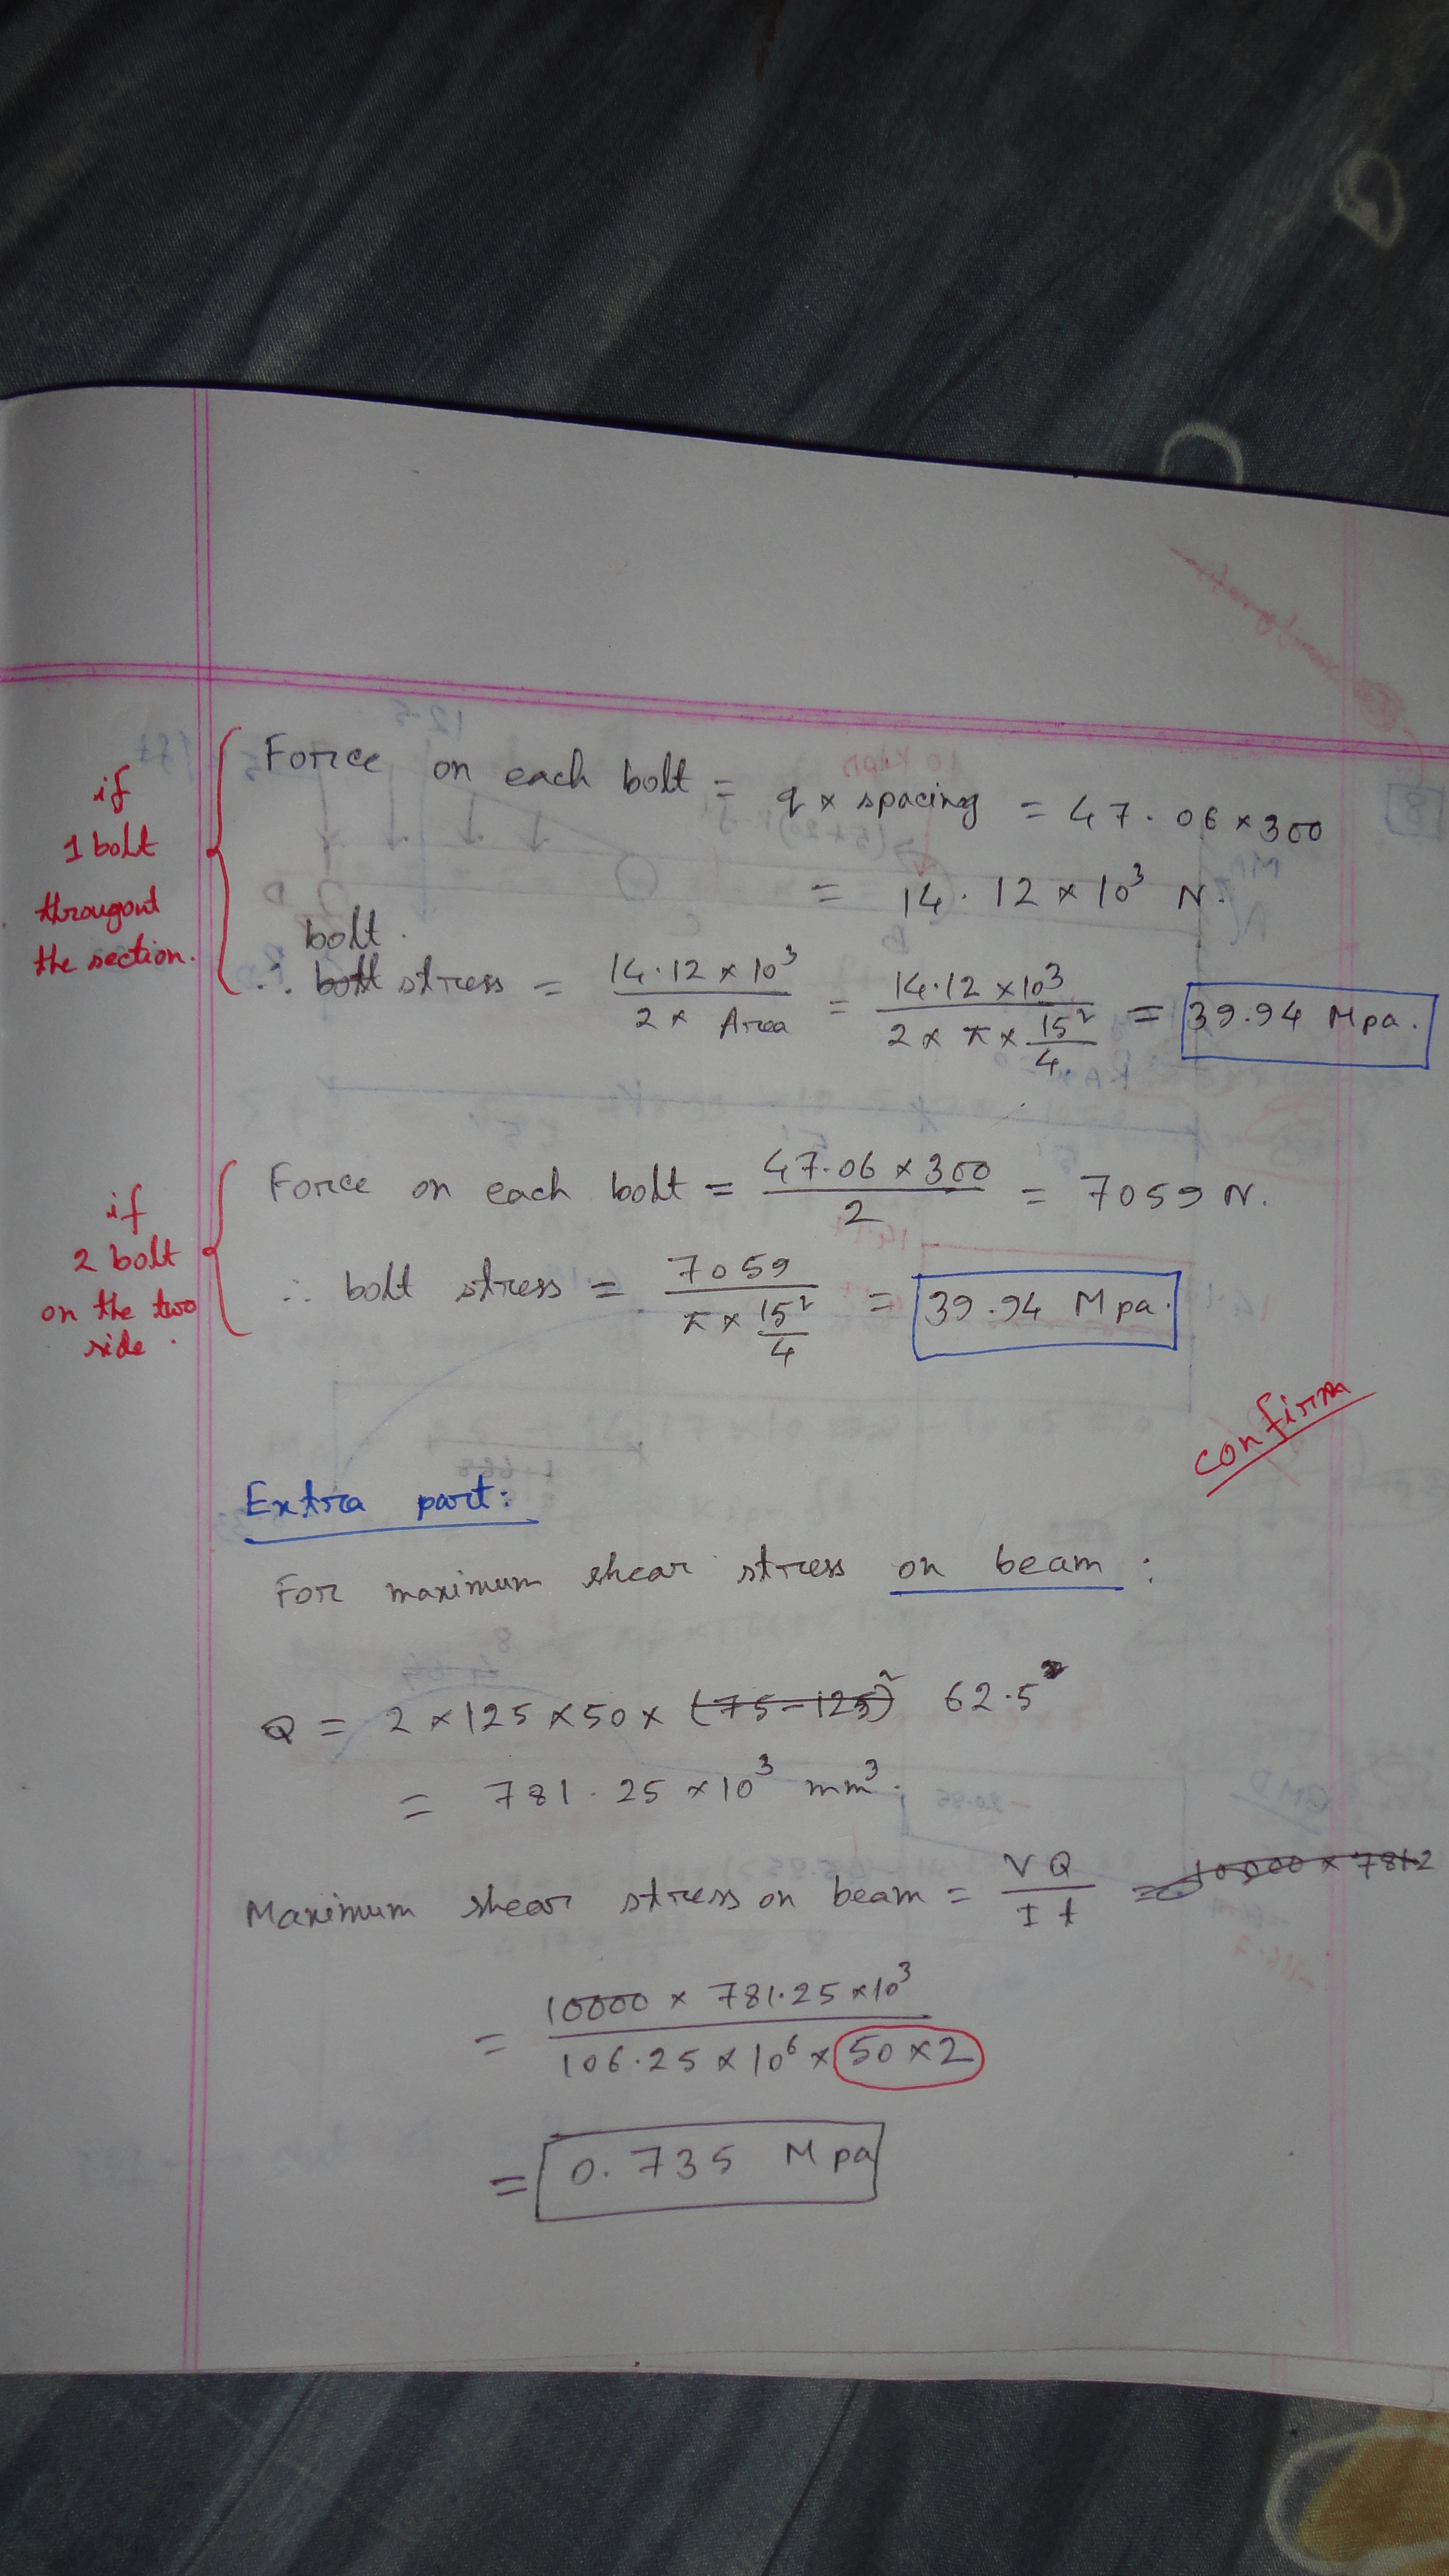 if
1 bolt
througout
the section.
Force on each bolt = q × spacing = 47.06 × 300
= 14.12 × 10³ N.
bolt.
∴ bolt stress = 14.12 × 10³ / 2 × Area = 14.12 × 10³ / 2 × π × 15²/4 = 39.94 Mpa.
if
2 bolt
on the two
side.
Force on each bolt = 47.06 × 300 / 2 = 7059 N.
∴ bolt stress = 7059 / π × 15²/4 = 39.94 Mpa.
confirm
Extra part:
For maximum shear stress on beam:
Q = 2 × 125 × 50 × (75-125)² 62.5
= 781.25 × 10³ mm³.
Maximum shear stress on beam = VQ / It = 10000 × 7812
= 10000 × 781.25 × 10³ / 106.25 × 10⁶ × 50 × 2
= 0.735 Mpa